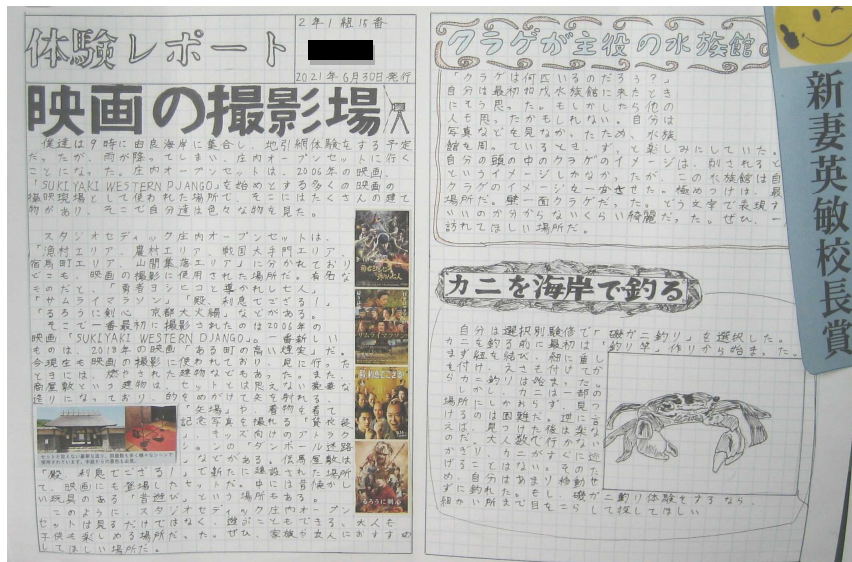 体験レポート
2年1組15番
2021年6月30日発行
映画の撮影場
僕達は9時に由良海岸に集合し、地引網体験をする予定
だったが、雨が降ってしまい、庄内オープンセットに行く
ことになった。庄内オープンセットは、2006年の映画、
「SUKIYAKI WESTERN DJANGO」を始めとする多くの映画の
撮影現場として使われた場所で、そこにはたくさんの建て
物があり、そこで自分達は色々な物を見た。
スタジオセディック庄内オープンセットは、
「漁村エリア、農村エリア、戦国大手門エリア、
宿場町エリア、山間集落エリア」に分かれており
どこも、映画の撮影に使用された場所だ。有名な
ものだと、「勇者ヨシヒコと導かれし七人」
「サムライマラソン」「殿、利息でござる！」
「るろうに剣心 京都大火編」などがある。
そこで一番最初に撮影されたのは2006年の
映画「SUKIYAKI WESTERN DJANGO」。一番新しい
ものは、2018年の映画「ある町の高い煙突」だ。
今現在も映画の撮影に使われており、見に行った
ときには、燃やされた建物などもあった。また、
商屋敷という建物は、セットとは思えない豪華な
造りになっており、的をめがけて矢を射れる、
「矢場」や、着物を着て
記念写真を撮れる「貸衣装
」、キッズ向けのアトラク
ションの「ダンボール迷路
」などがある。伝馬屋敷は
「殿、利息でござる！」で新たに建設された場所
で、映画にも登場したセットだ。中には昔懐かし
い玩具のある「昔遊び」という場所もある。
このように、スタジオセディック庄内オープン
セットは見るだけではなく、遊ぶこともできる、大人も
子供も楽しめる場所だった。ぜひ、家族や友人におすすめ
してほしい場所だ。
クラゲが主役の水族館。
「クラゲは何匹いるのだろう？」
自分は最初加茂水族館に来たとき
にそう思った。もしかしたら他の
人も思ったかもしれない。自分は
写真などを見なかったため、水族
館を周っているとき、ずっと楽しみにしていた。
自分の頭の中のクラゲのイメージは、刺されると
いうイメージしかなかったが、この水族館は自
クラゲのイメージを一変させた。極めつけは、最
場所だ。壁一面クラゲだった。どう文字で表現す
いいのか分からないくらい綺麗だった。ぜひ、一
訪れてほしい場所だ。
カニを海岸で釣る
自分は選択別験修で「磯ガニ釣り」を選択した。
カニを釣る前に最初は「釣り竿」作りから始まった。
まず紐を結び、紐に重り
を付け、えさを付けてか
らカニ釣りは始まった。
しかし、カニは一部の
場所にしかおらず、見つ
けるのは困難だ。逆に言
えば、見つけた後は楽な
のだ。大人数で行かない
かぎり、カニがすぐに逃
げることはない。そのた
め、自分はあまり移動せ
ずに釣れた。もし、磯ガニ釣り体験をするなら、
細かい所まで目をこらして探してほしい
新妻英敏校長賞